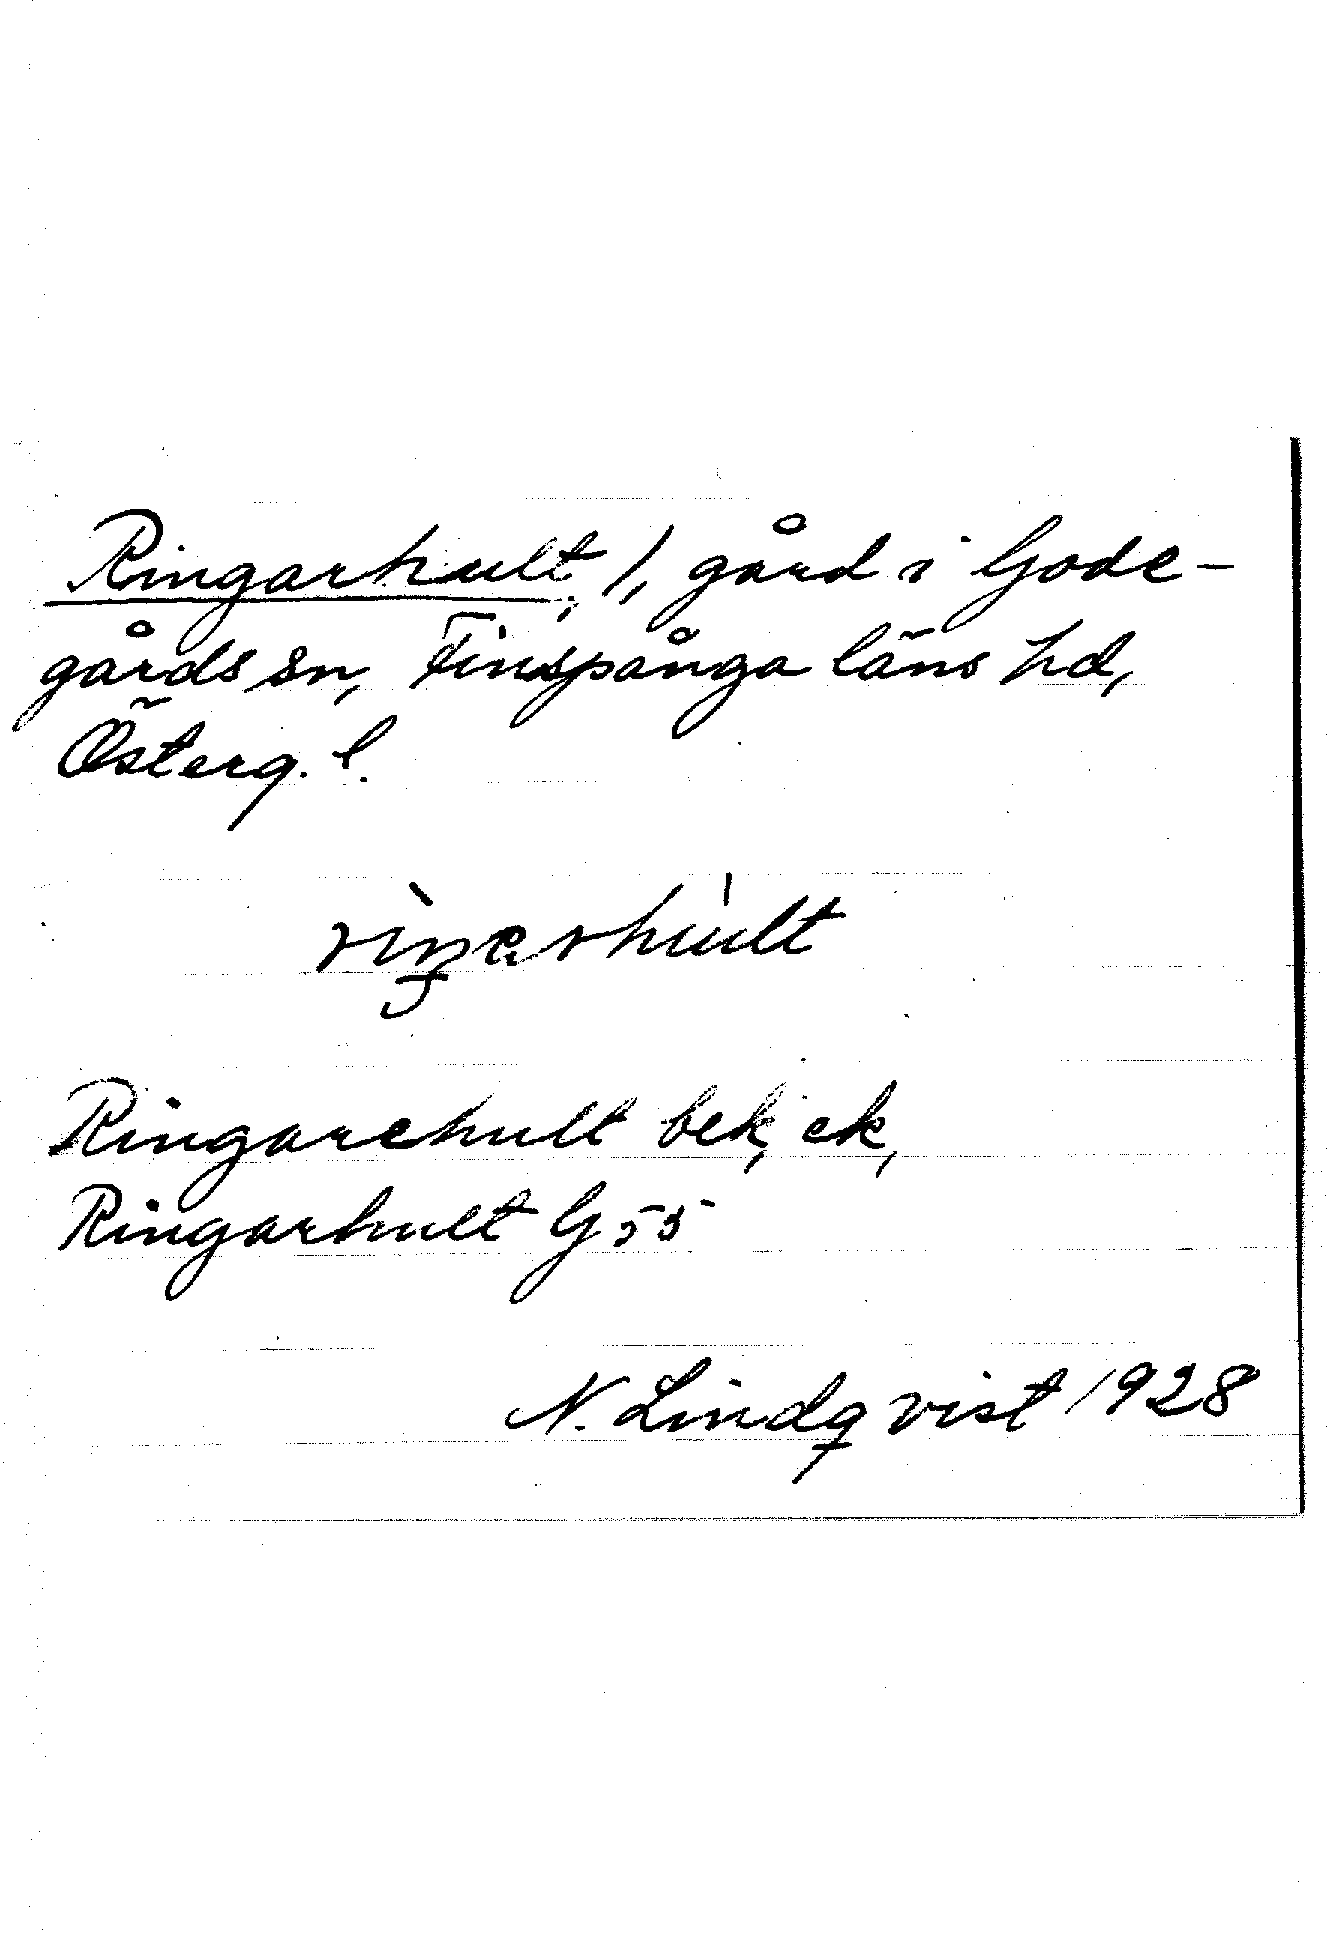 Ringarhult, /, gård i Gode-
gårds sn, Finspånga läns hd,
Österg. l.
Ringarehult bek, ek,
Ringarhult G55
N. Lindqvist 1928